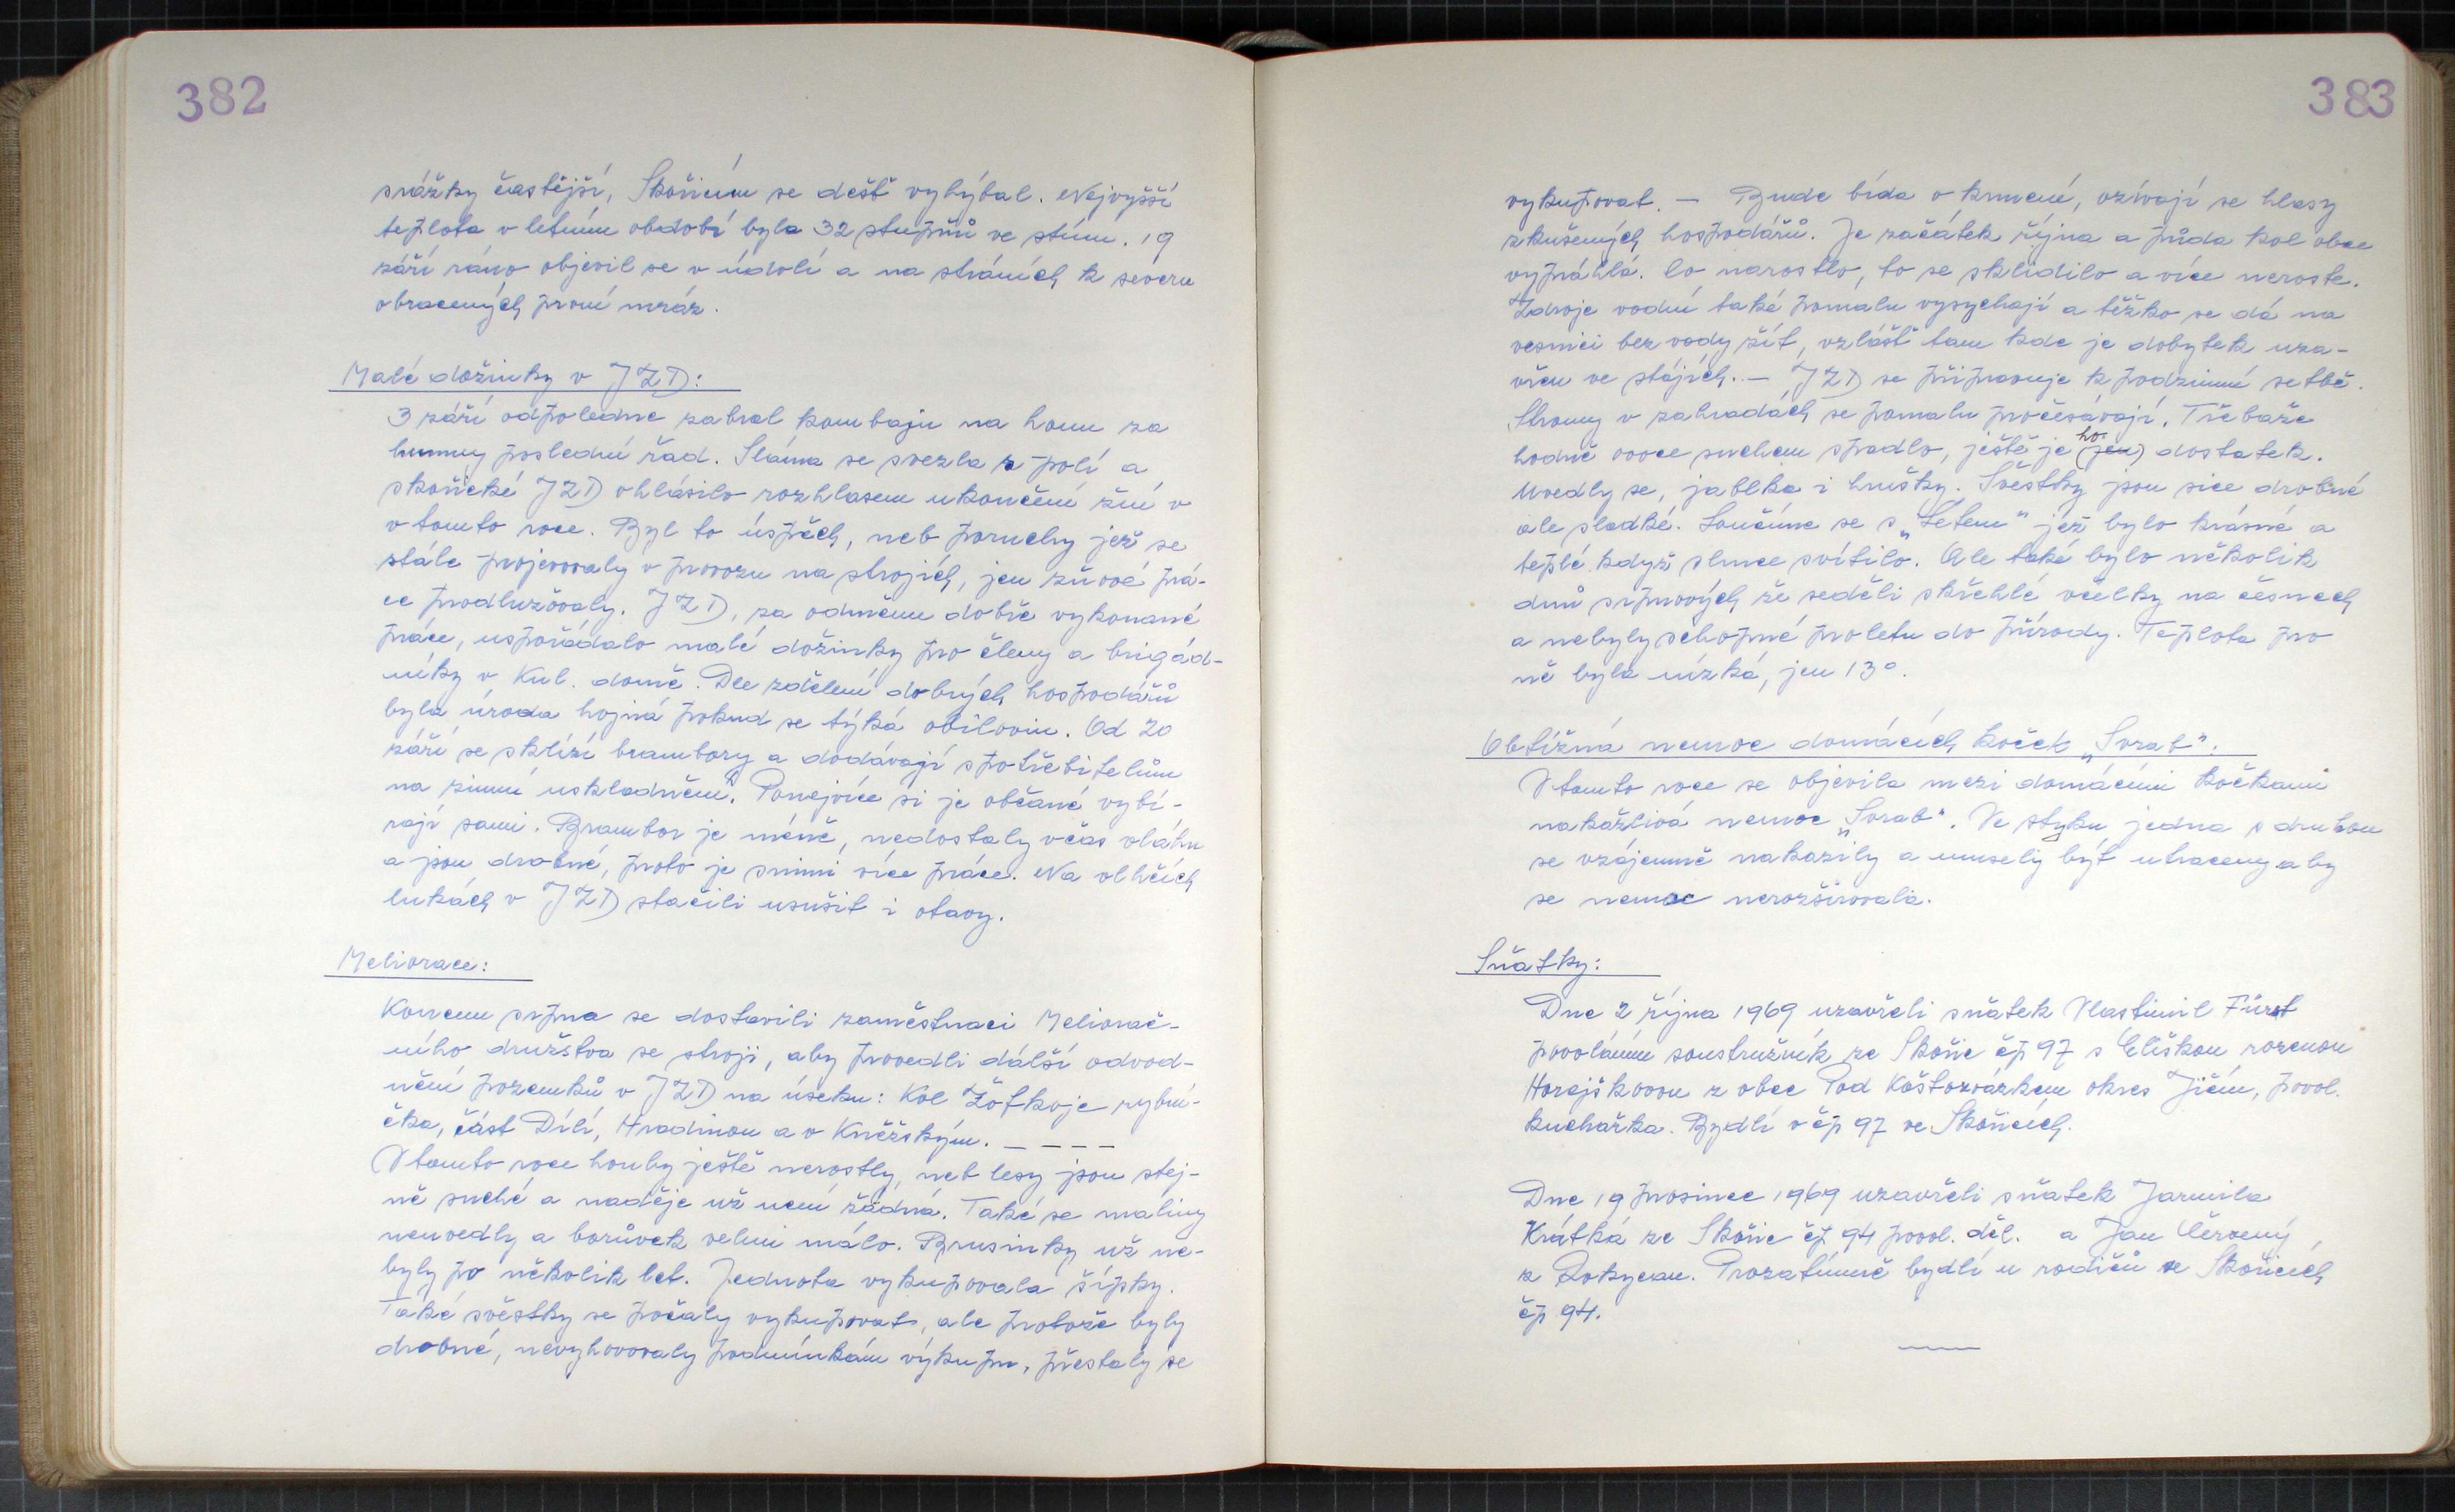 382
srážky častější, Skořicím se déšť vyhýbal. Nejvyšší
teplota v letním období byla 32 stupňů ve stínu. 19
září ráno objevil se v údolí a na stráních k severu
obracených první mráz.
Malé dožinky v JZD:
3 září odpoledne zabral kombajn na honu za
humny poslední řad. Sláma se svezla z polí a
skořické JZD ohlásilo rozhlasem ukončení žní v
v tomto roce. Byl to úspěch, neb poruchy jež se
stále projevovaly v provozu na strojích, jen žňové prá-
ce prodlužovaly. JZD, za odměnu dobře vykonané
práce, uspořádalo malé dožinky pro členy a brigád-
níky v Kul. domě. Dle zdělení dobrých hospodářů
byla úroda hojná pokud se týká obilovin. Od 20
září se sklízí brambory a dodávají spotřebitelům
na zimní uskladnění. Ponejvíce si je občané vybí-
rají sami. Brambor je méně, nedostaly včas vláhu
a jsou drobné, proto je snimi více práce. Na vlhčích
lukách v JZD stačili usušit i otavy.
Meliorace:
Koncem srpna se dostavili zaměstnaci Meliorač-
ního družstva se stroji, aby provedli dálší odvod-
nění pozemků v JZD na úseku: Kol Žofkoje rybní-
čka, část Dílí, Hradinou a v Kněžským. _ _ _ _
V tomto roce houby ještě nerostly, neb lesy jsou stej-
ně suché a naděje už není žádná. Také se maliny
neuvedly a borůvek velmi málo. Brusinky už ne-
byly po několik let. Jednota vykupovala šípky.
Také svěstky se počaly vykupovat, ale protože byly
drobné, nevyhovovaly podmínkám výkupu, přestaly se
383
vykupovat. — Bude bída o krmení, ozívají se hlasy
zkušených hospodářů. Je začátek října a půda kol obce
vypráhlá. Co narostlo, to se sklidilo a více neroste.
Zdroje vodní také pomalu vysychají a těžko se dá na
vesnici bez vody žít, vzlášť tam kde je dobytek uza-
vřen ve stájích. — JZD se připravuje k podzimní setbě.
Stromy v zahradách se pomalu pročesávají. Třebaže
ho-
hodně ovoce suchem spadlo, ještě je (jen) dostatek.
Uvedly se, jablka i hrušky. Švěstky jsou sice drobné
ale sladké. Loučíme se s „Létem“ jež bylo krásné a
teplé když slunce svítilo. Ale také bylo několik
dnů srpnových že seděli skřehlé včelky na česnech
a nebyly schopné proletu do přírody. Teplota pro
ně byla nízká, jen 13°.
Obtížná nemoc domácích koček „Svrab“.
V tomto roce se objevila mezi domácími kočkami
nakažlivá nemoc „Svrab“. Ve styku jedna s druhou
se vzájemně nakazily a museli být utraceny aby
se nemoc nerozšiřovala.
Sňatky:
Dne 2 října 1969 uzavřeli sňatek Vlastimil Fürst
povoláním soustružník ze Skořic čp 97 s Eliškou rozenou
Horejškovou z obce Pod Košťozvárkem okres Jičín, povol.
kuchařka. Bydlí v čp 97 ve Skořicích.
Dne 19 prosince 1969 uzavřeli sňatek Jarmila
Krátká ze Skořic čp. 94 povol. děl. a Jan Červený,
z Rokycan. Prozatímně bydlí u rodičů ve Skořicích
čp 94.